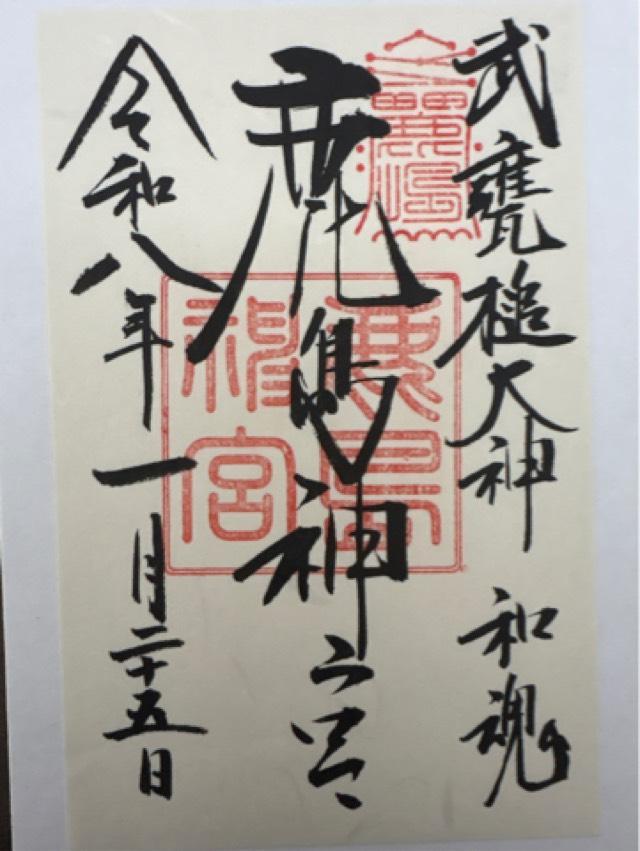 武甕槌大神 和魂
鹿島神宮
鹿島神宮
令和八年一月二十五日